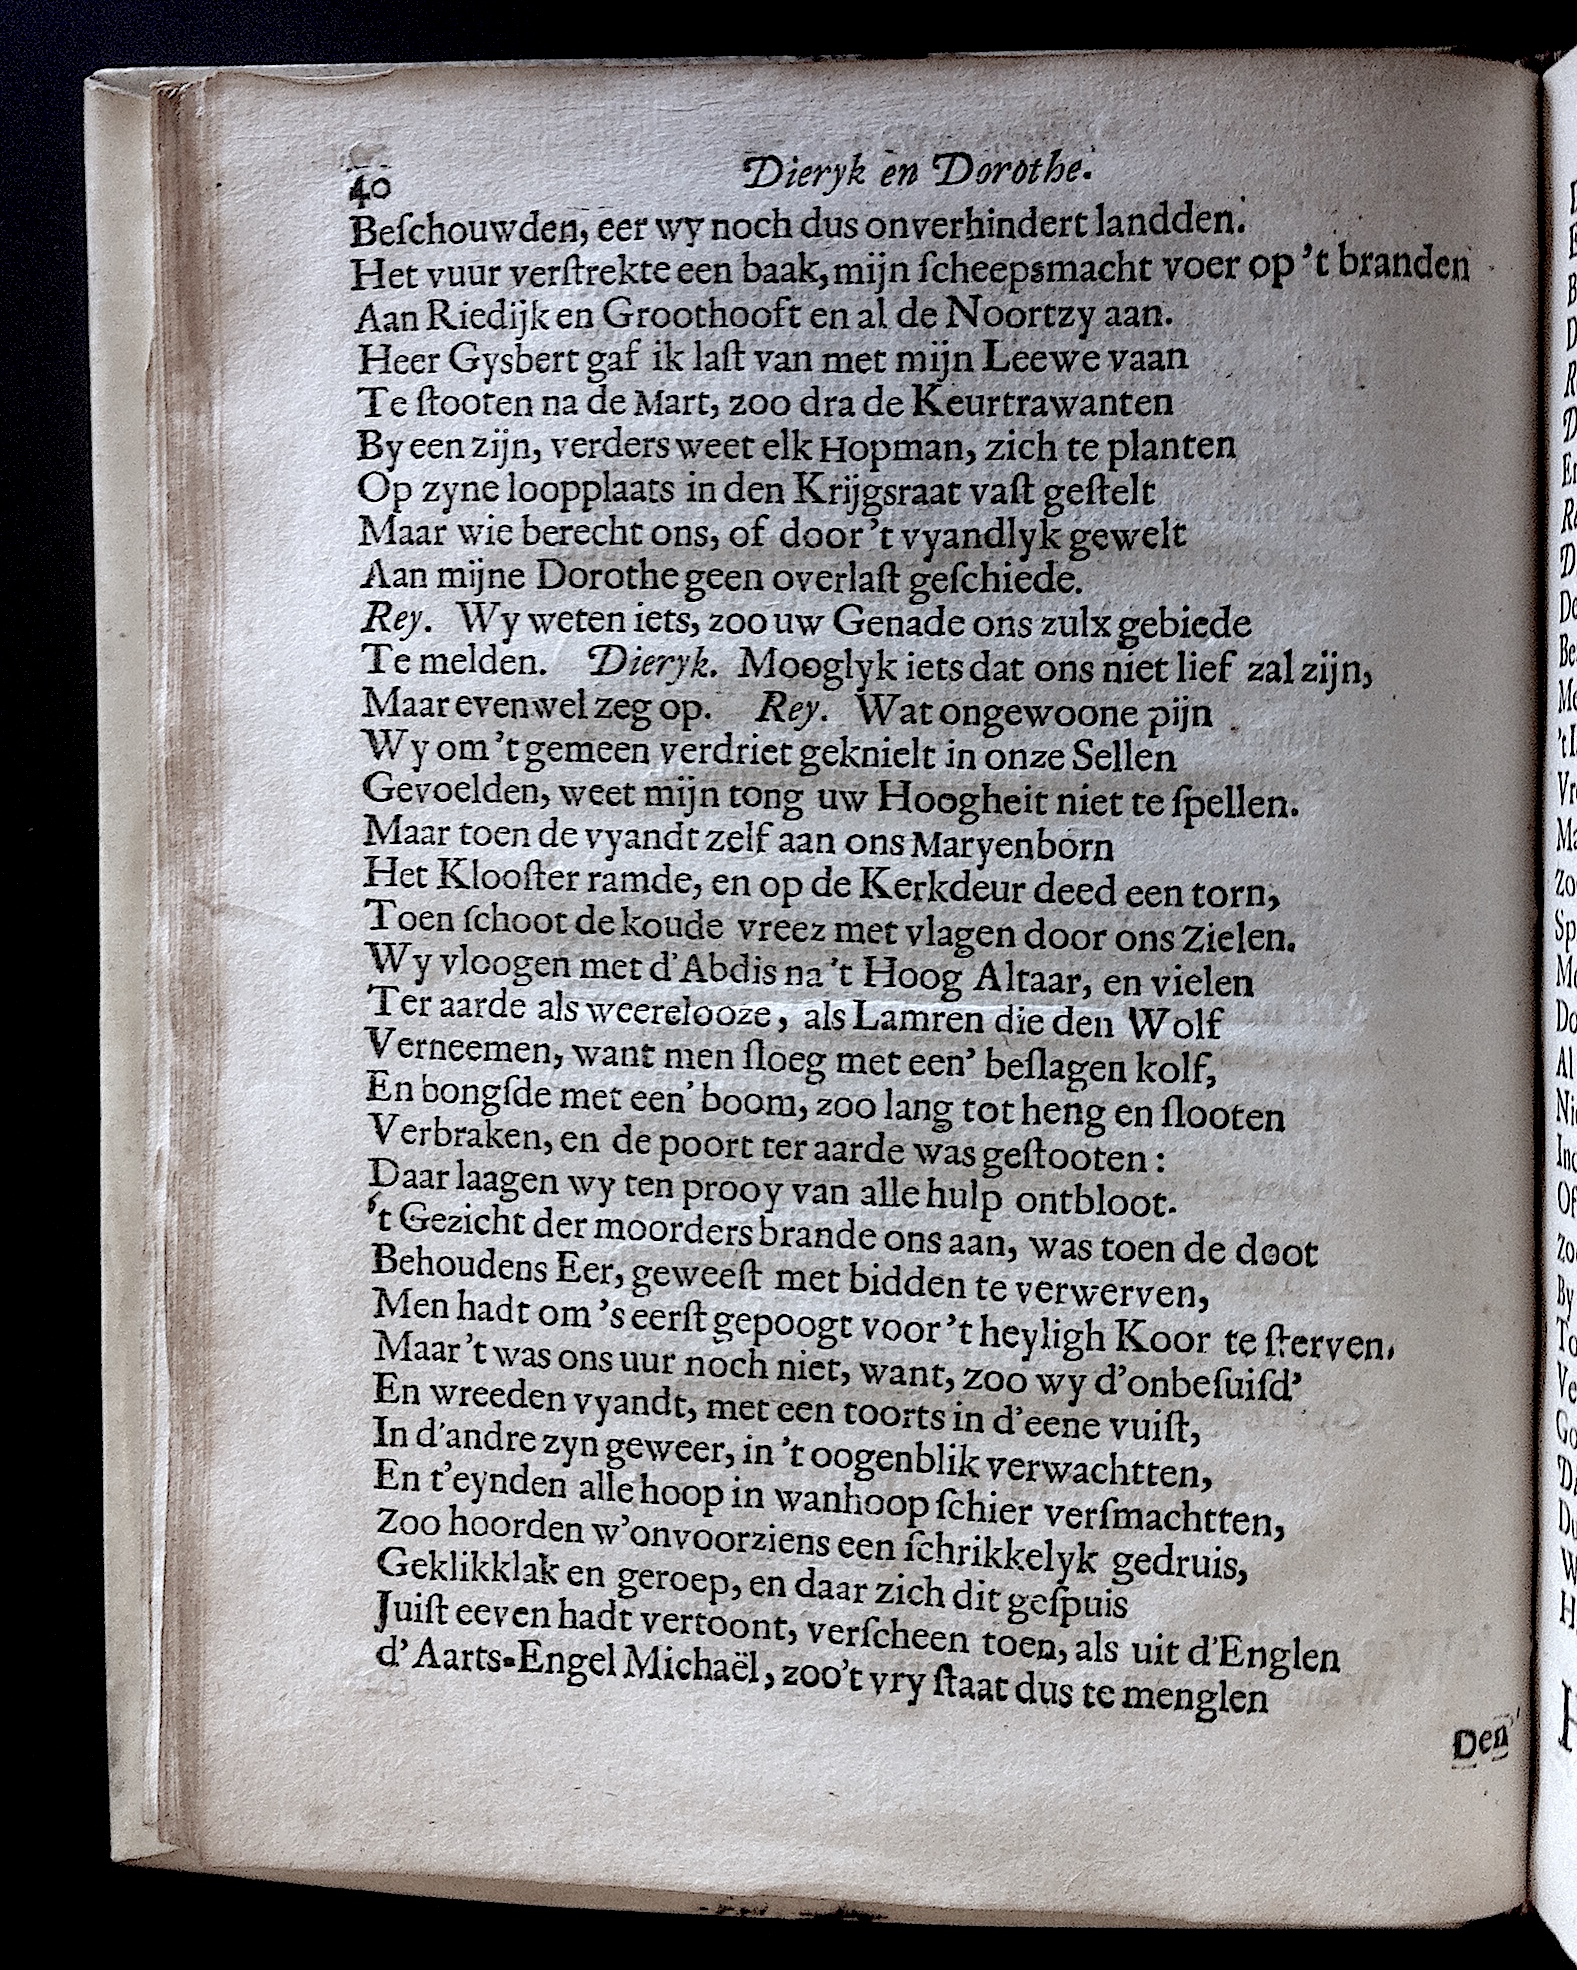 40 Dieryk en Dorothe.
Beſchouwden, eer wy noch dus onverhindert landden.
Het vuur verſtrekte een baak, mijn ſcheepsmacht voer op 't branden
Aan Riedijk en Groothooft en al de Noortzy aan.
Heer Gysbert gaf ik laſt van met mijn Leewe vaan
Te ſtooten na de Mart, zoo dra de Keurtrawanten
By een zijn, verders weet elk Hopman, zich te planten
Op zyne loopplaats in den Krijgsraat vaſt geſtelt
Maar wie berecht ons, of door 't vyandlyk gewelt
Aan mijne Dorothe geen overlaſt geſchiede.
Rey. Wy weten iets, zoo uw Genade ons zulx gebiede
Te melden. Dieryk. Mooglyk iets dat ons niet lief zal zijn,
Maar evenwel zeg op. Rey. Wat ongewoone pijn
Wy om 't gemeen verdriet geknielt in onze Sellen
Gevoelden, weet mijn tong uw Hoogheit niet te ſpellen.
Maar toen de vyandt zelf aan ons Maryenborn
Het Klooſter ramde, en op de Kerkdeur deed een torn,
Toen ſchoot de koude vreez met vlagen door ons Zielen.
Wy vloogen met d'Abdis na 't Hoog Altaar, en vielen
Ter aarde als weerelooze, als Lamren die den Wolf
Verneemen, want men ſloeg met een' beſlagen kolf,
En bongſde met een' boom, zoo lang tot heng en ſlooten
Verbraken, en de poort ter aarde was geſtooten:
Daar laagen wy ten prooy van alle hulp ontbloot.
't Gezicht der moorders brande ons aan, was toen de doot
Behoudens Eer, geweeſt met bidden te verwerven,
Men hadt om 's eerſt gepoogt voor 't heyligh Koor te ſterven.
Maar 't was ons uur noch niet, want, zoo wy d'onbeſuiſd'
En wreeden vyandt, met een toorts in d'eene vuiſt,
In d'andre zyn geweer, in 't oogenblik verwachtten,
En t'eynden alle hoop in wanhoop ſchier verſmachtten,
Zoo hoorden w'onvoorziens een ſchrikkelyk gedruis,
Geklikklak en geroep, en daar zich dit geſpuis
Juiſt eeven hadt vertoont, verſcheen toen, als uit d'Englen
d'Aarts-Engel Michaël, zoo't vry ſtaat dus te menglen
Den